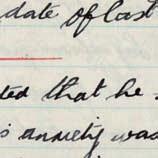 date of last
that he
anxiety was